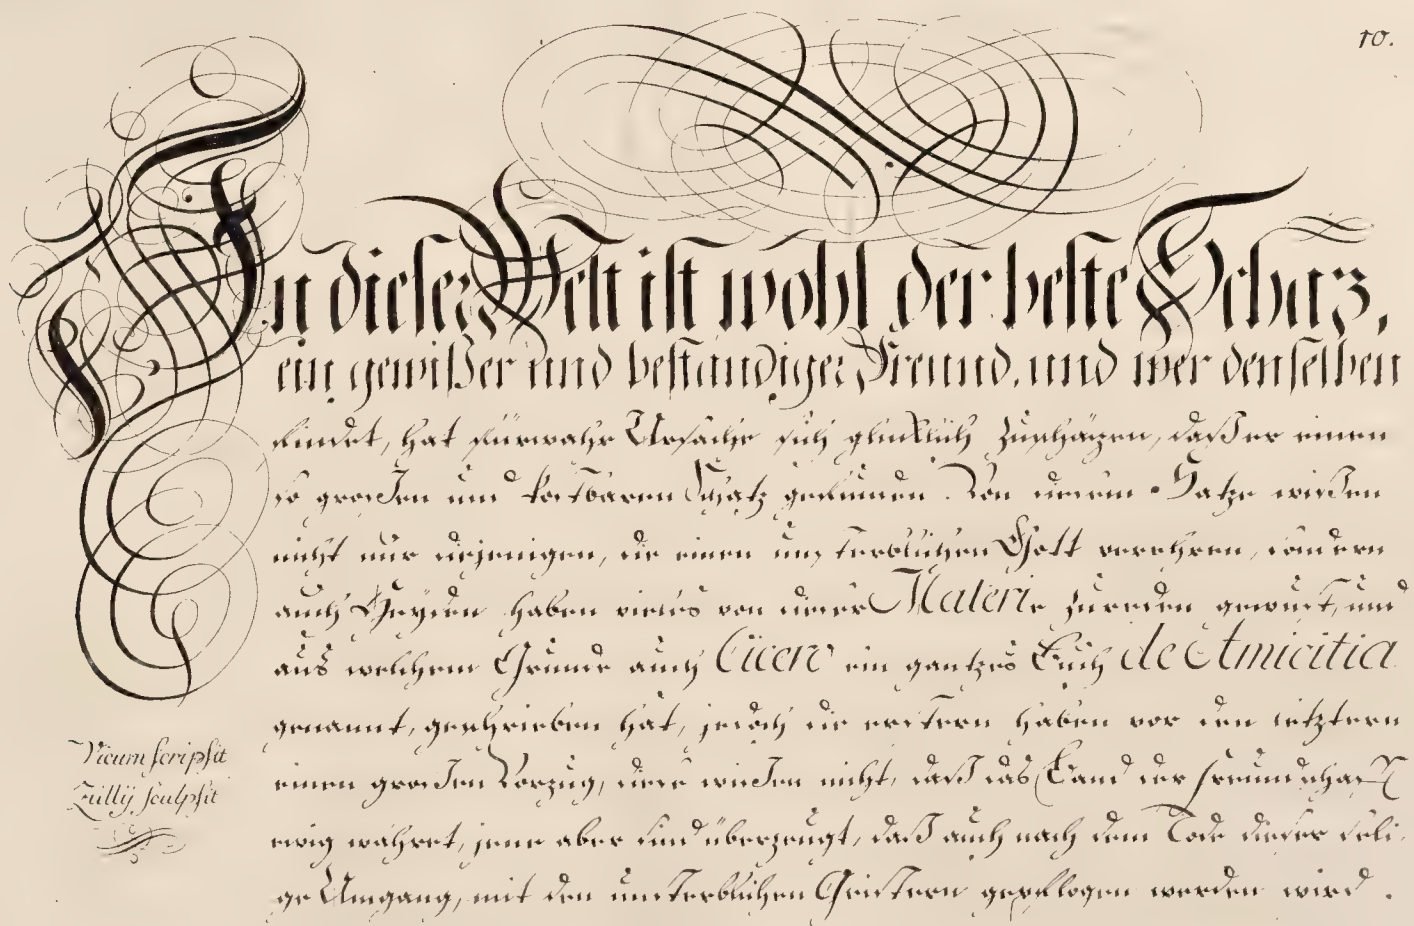 10.
In dieser Welt ist wohl der beste Schaz,
ein gewißer und beständiger Freund, und wer denselben
findet, hat fürwahr Ursache sich glücklich zuschäzen, daß er einen
so großen und kostbaren Schatz gefunden. Von diesem Satze wißen
nicht nur diejenigen, die einen unsterblichen Gott verehren, sondern
auch Heyden haben vieles von dieser Materie zureden gewust, und
aus welchem Grunde auch Cicero ein gantzes Buch de Amicitia
genannt, geschrieben hat, jedoch die erstern haben vor den letztern
einen großen Vorzug, diese wißen nicht, daß das Band der Freundschafft
ewig währet, jene aber sind überzeugt, daß auch nach dem Tode dieser seli-
ge Umgang, mit den unsterblichen Geistern gepflogen werden wird.
Vicum scripsit
Zullÿ sculpsit